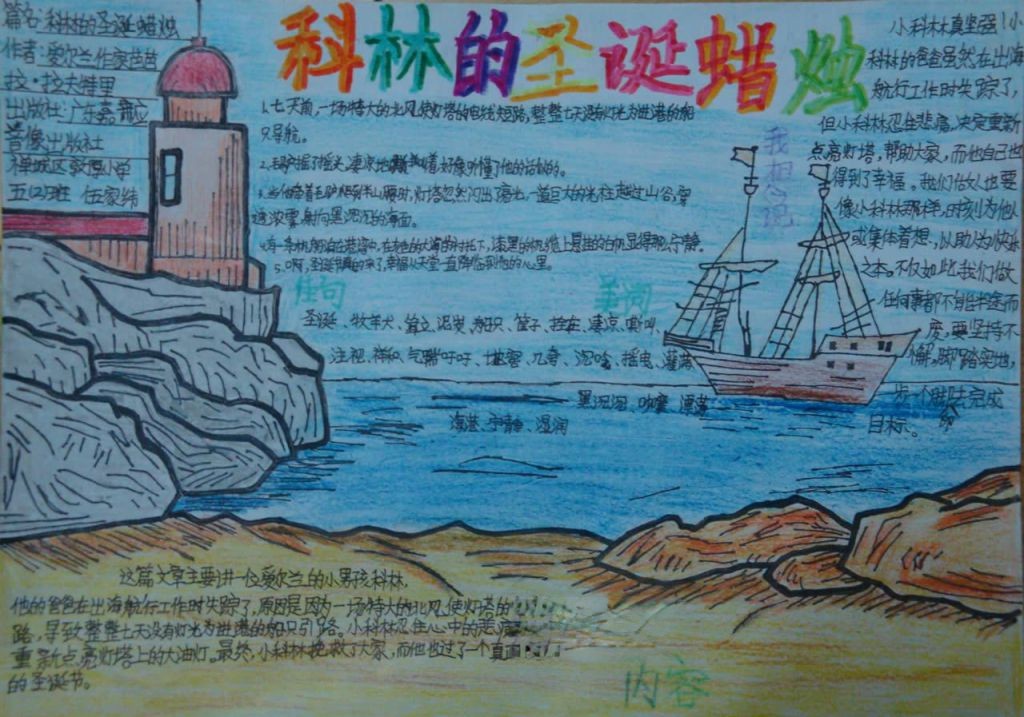 科林的圣诞蜡烛
篇名:科林的圣诞蜡烛
作者:爱尔兰作家芭芭
拉·拉夫特里
出版社:广东嘉
音像出版社
禅城区敦厚小学
五(2)班 伍家纬
1.七天前,一场特大的北风使灯塔的电线短路,整整七天没有灯光为进港的船
只导航。
2.
3.当他牵着毛驴爬到半山腰时,灯塔忽然闪出亮光,一道巨大的光柱越过山谷,穿
透浓雾,射向黑沉沉的海面。
5.啊,圣诞节真的来了,幸福从天堂一直降临到他的心里。
佳句
圣诞、牧羊犬、耸立、泥炭、船只、篮子、拴在、凄凉、嘶叫、
注视、祥和、气喘吁吁、
黑沉沉、
海港、宁静、湿润
我想说
小科林真坚强!小
科林的爸爸虽然在出海
航行工作时失踪了,
但小科林忍住悲痛,决定重新
点亮灯塔,帮助大家,而他自己也
得到了幸福。我们做人也要
像小科林那样,时刻为他人
或集体着想,以助人为快乐
之本。不仅如此,我们做
任何事都不能半途而
废,要坚持不
懈,脚踏实地,
一步一个脚印去完成
目标。
这篇文章主要讲一位爱尔兰的小男孩科林,
他的爸爸在出海航行工作时失踪了,原因是因为一场特大的北风使灯塔的
路,导致整整七天没有灯光为进港的船只引路。小科林忍住心中的悲
重新点亮灯塔上的大油灯。最终,小科林挽救了大家,而他也过了一个真
的圣诞节。
内容